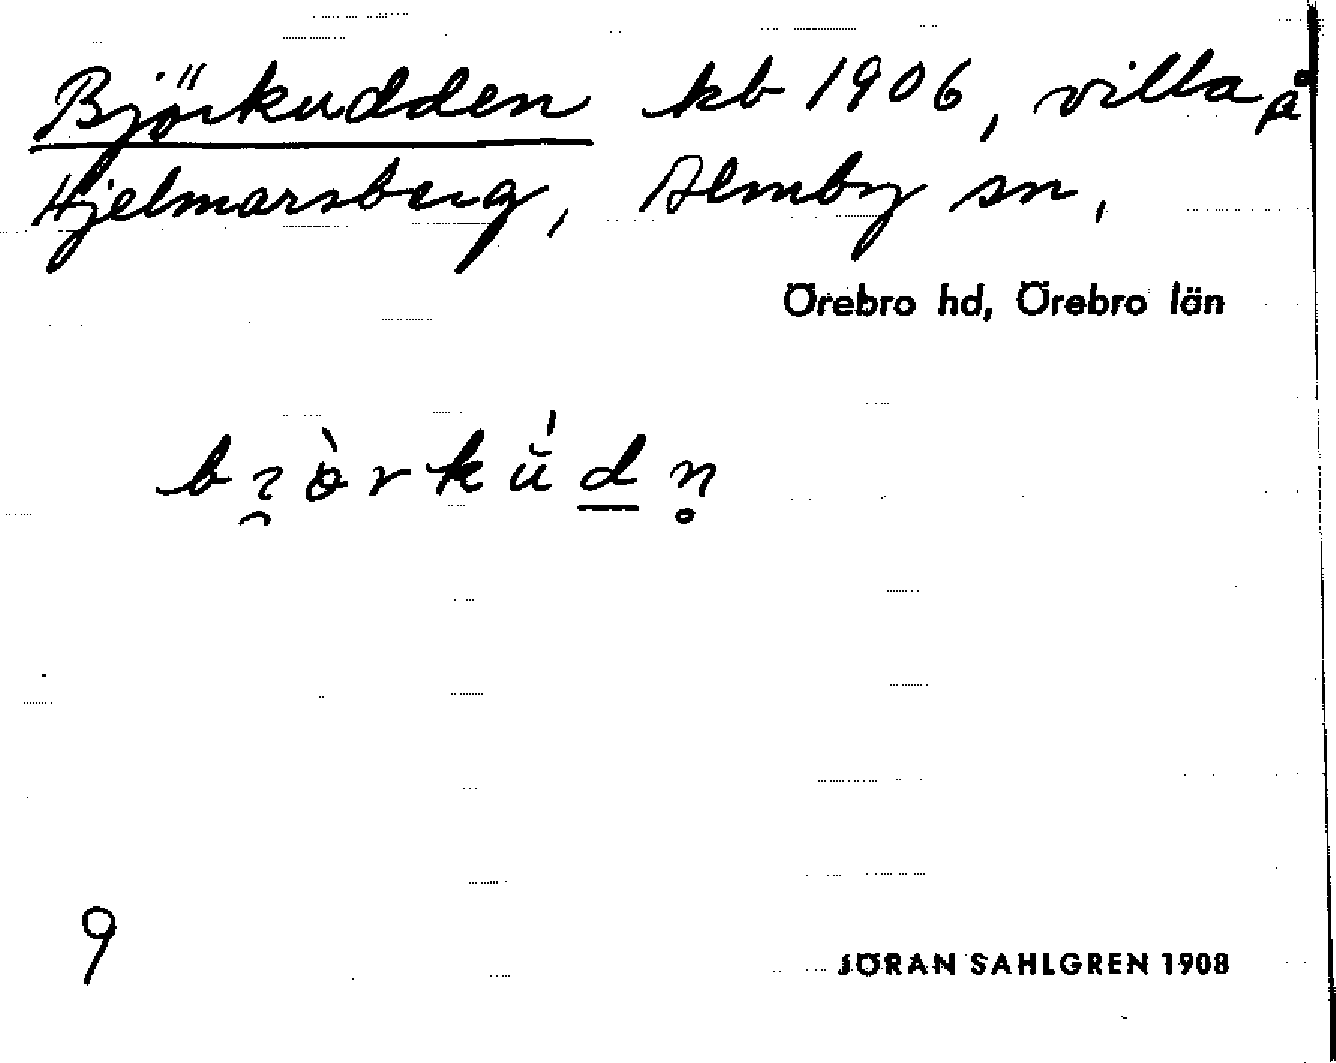 Björkudden kb 1906, villa på
Hjelmarsberg, Almby sn,
Örebro hd, Örebro län
9
JÖRAN SAHLGREN 1908